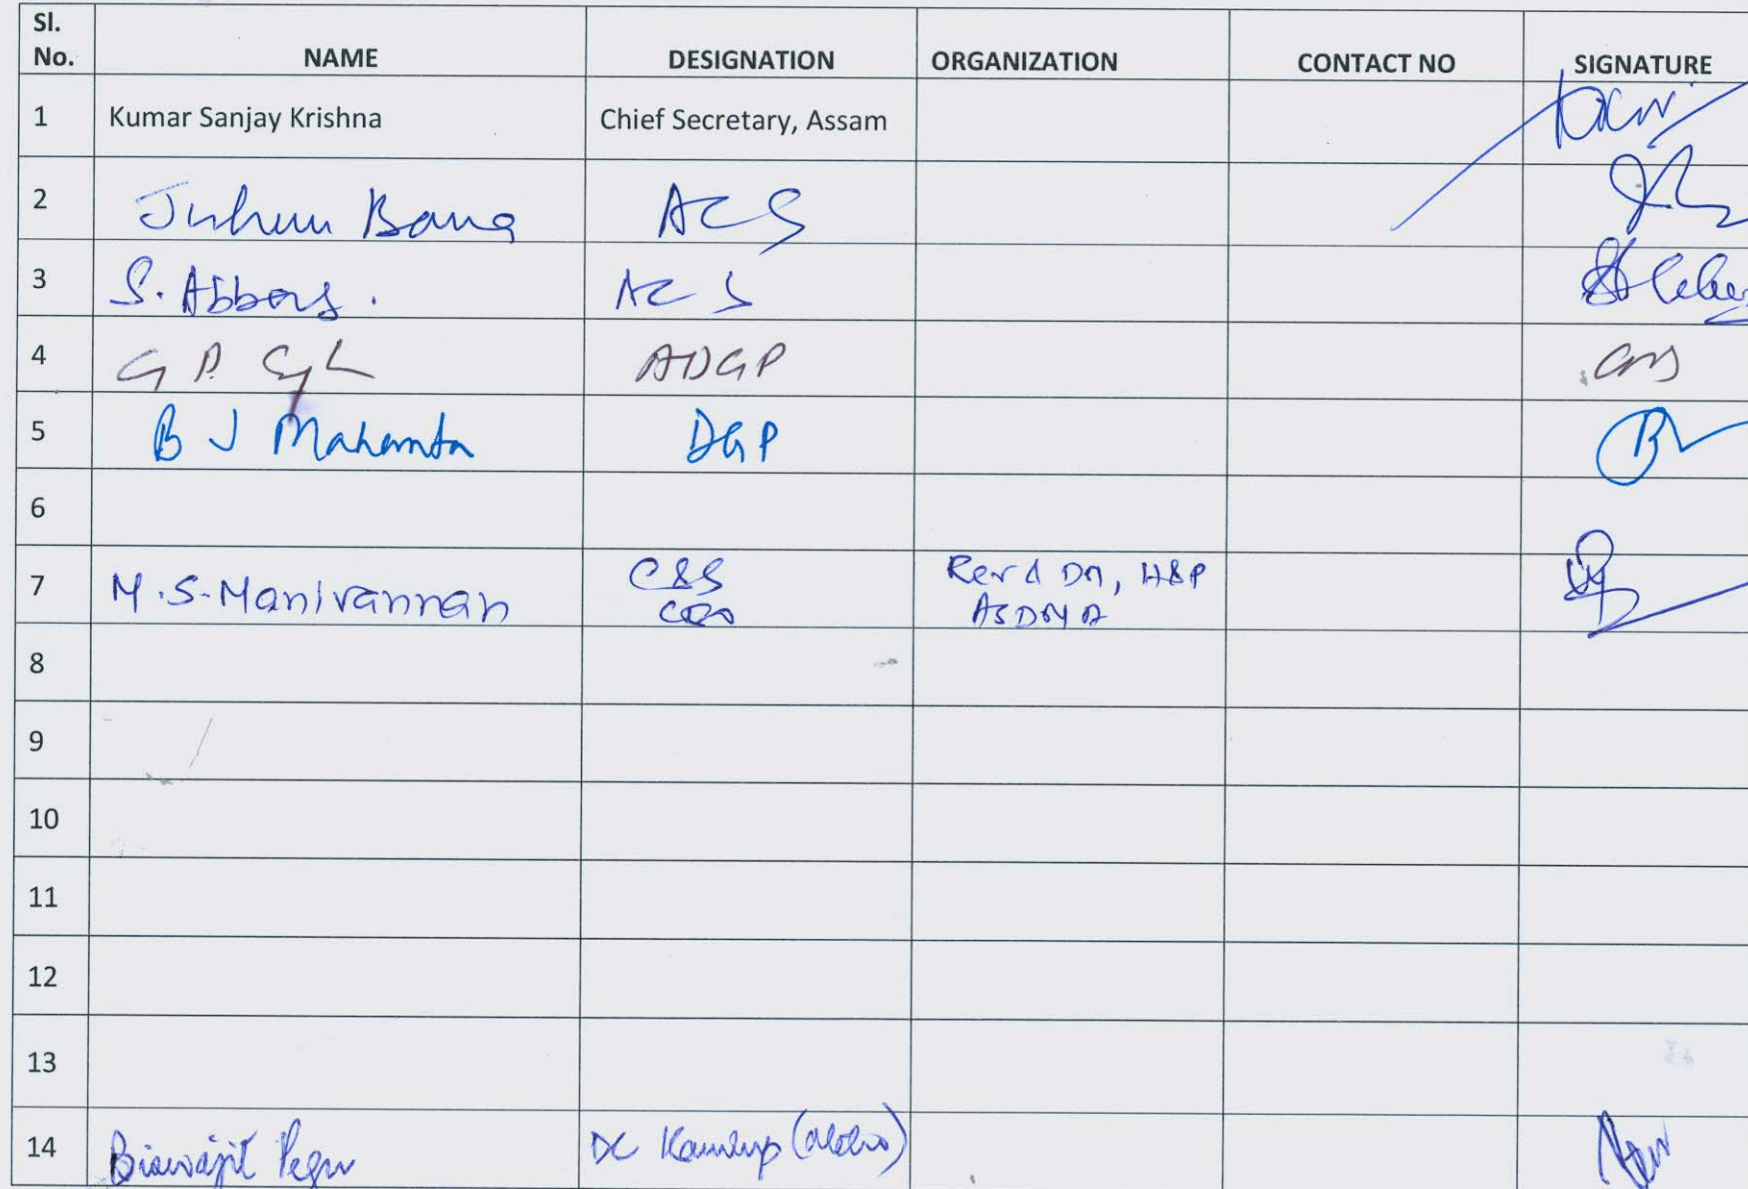 Sl.
No. NAME DESIGNATION ORGANIZATION CONTACT NO SIGNATURE
1 Kumar Sanjay Krishna Chief Secretary, Assam
2 ACS
3 S. Abbasy. ACS
4 G P. ADGP
5 B J Mahanta DGP
6
7 M.S. Manivannan C&S Rev & DM, H&P
CEO ASDMA
8
9
10
11
12
13
14 Biswajit Pegu DC Kamrup (Metro)